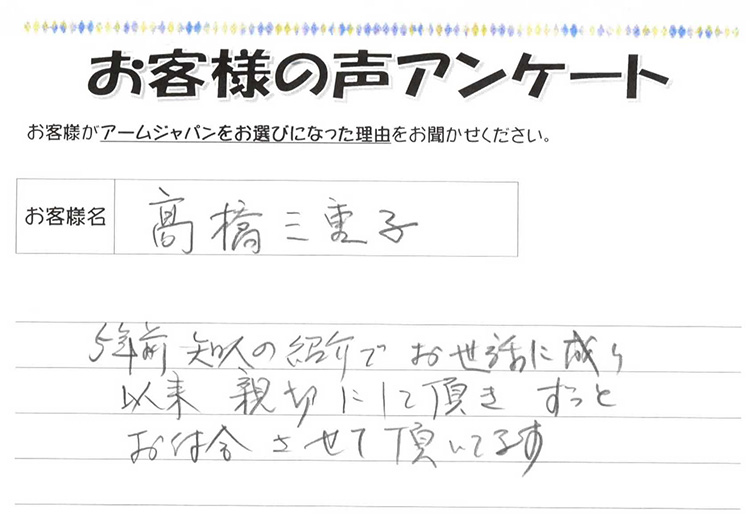 お客様の声アンケート
お客様がアームジャパンをお選びになった理由をお聞かせください。
お客様名 髙橋三重子
5年前 知人の紹介で お世話に成り
以来 親切にして頂き ずっと
お付合させて頂いてます